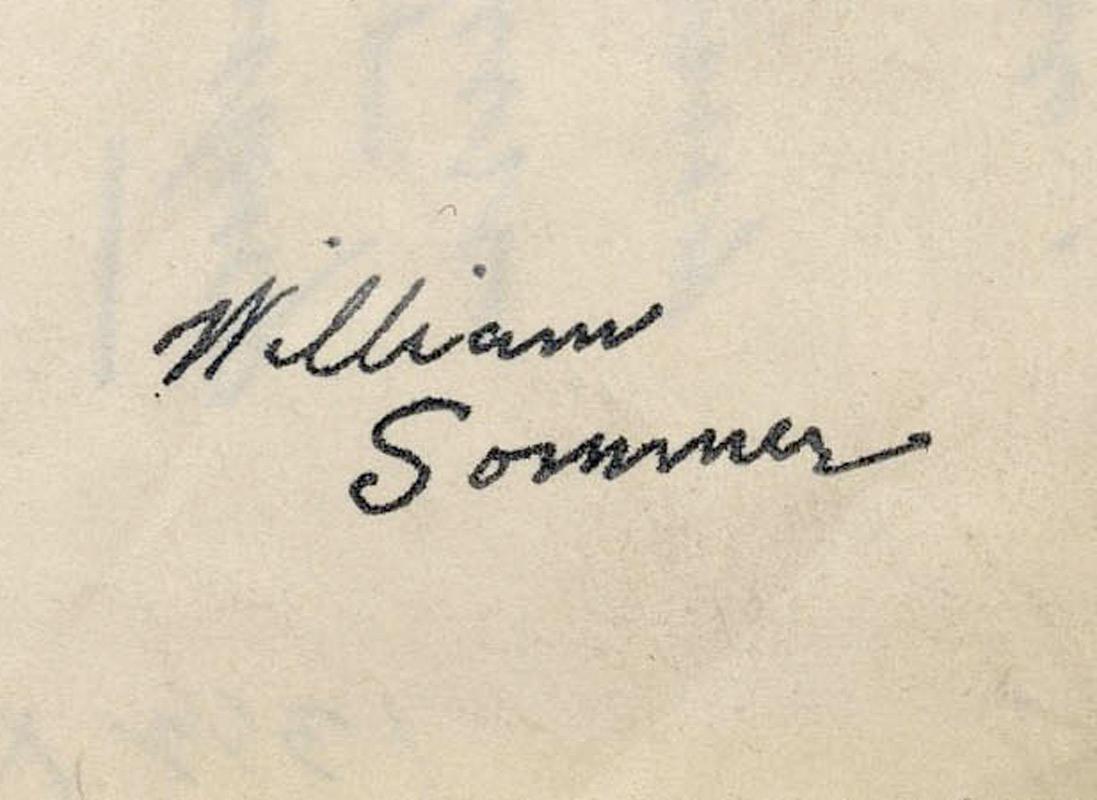 William
Sommer